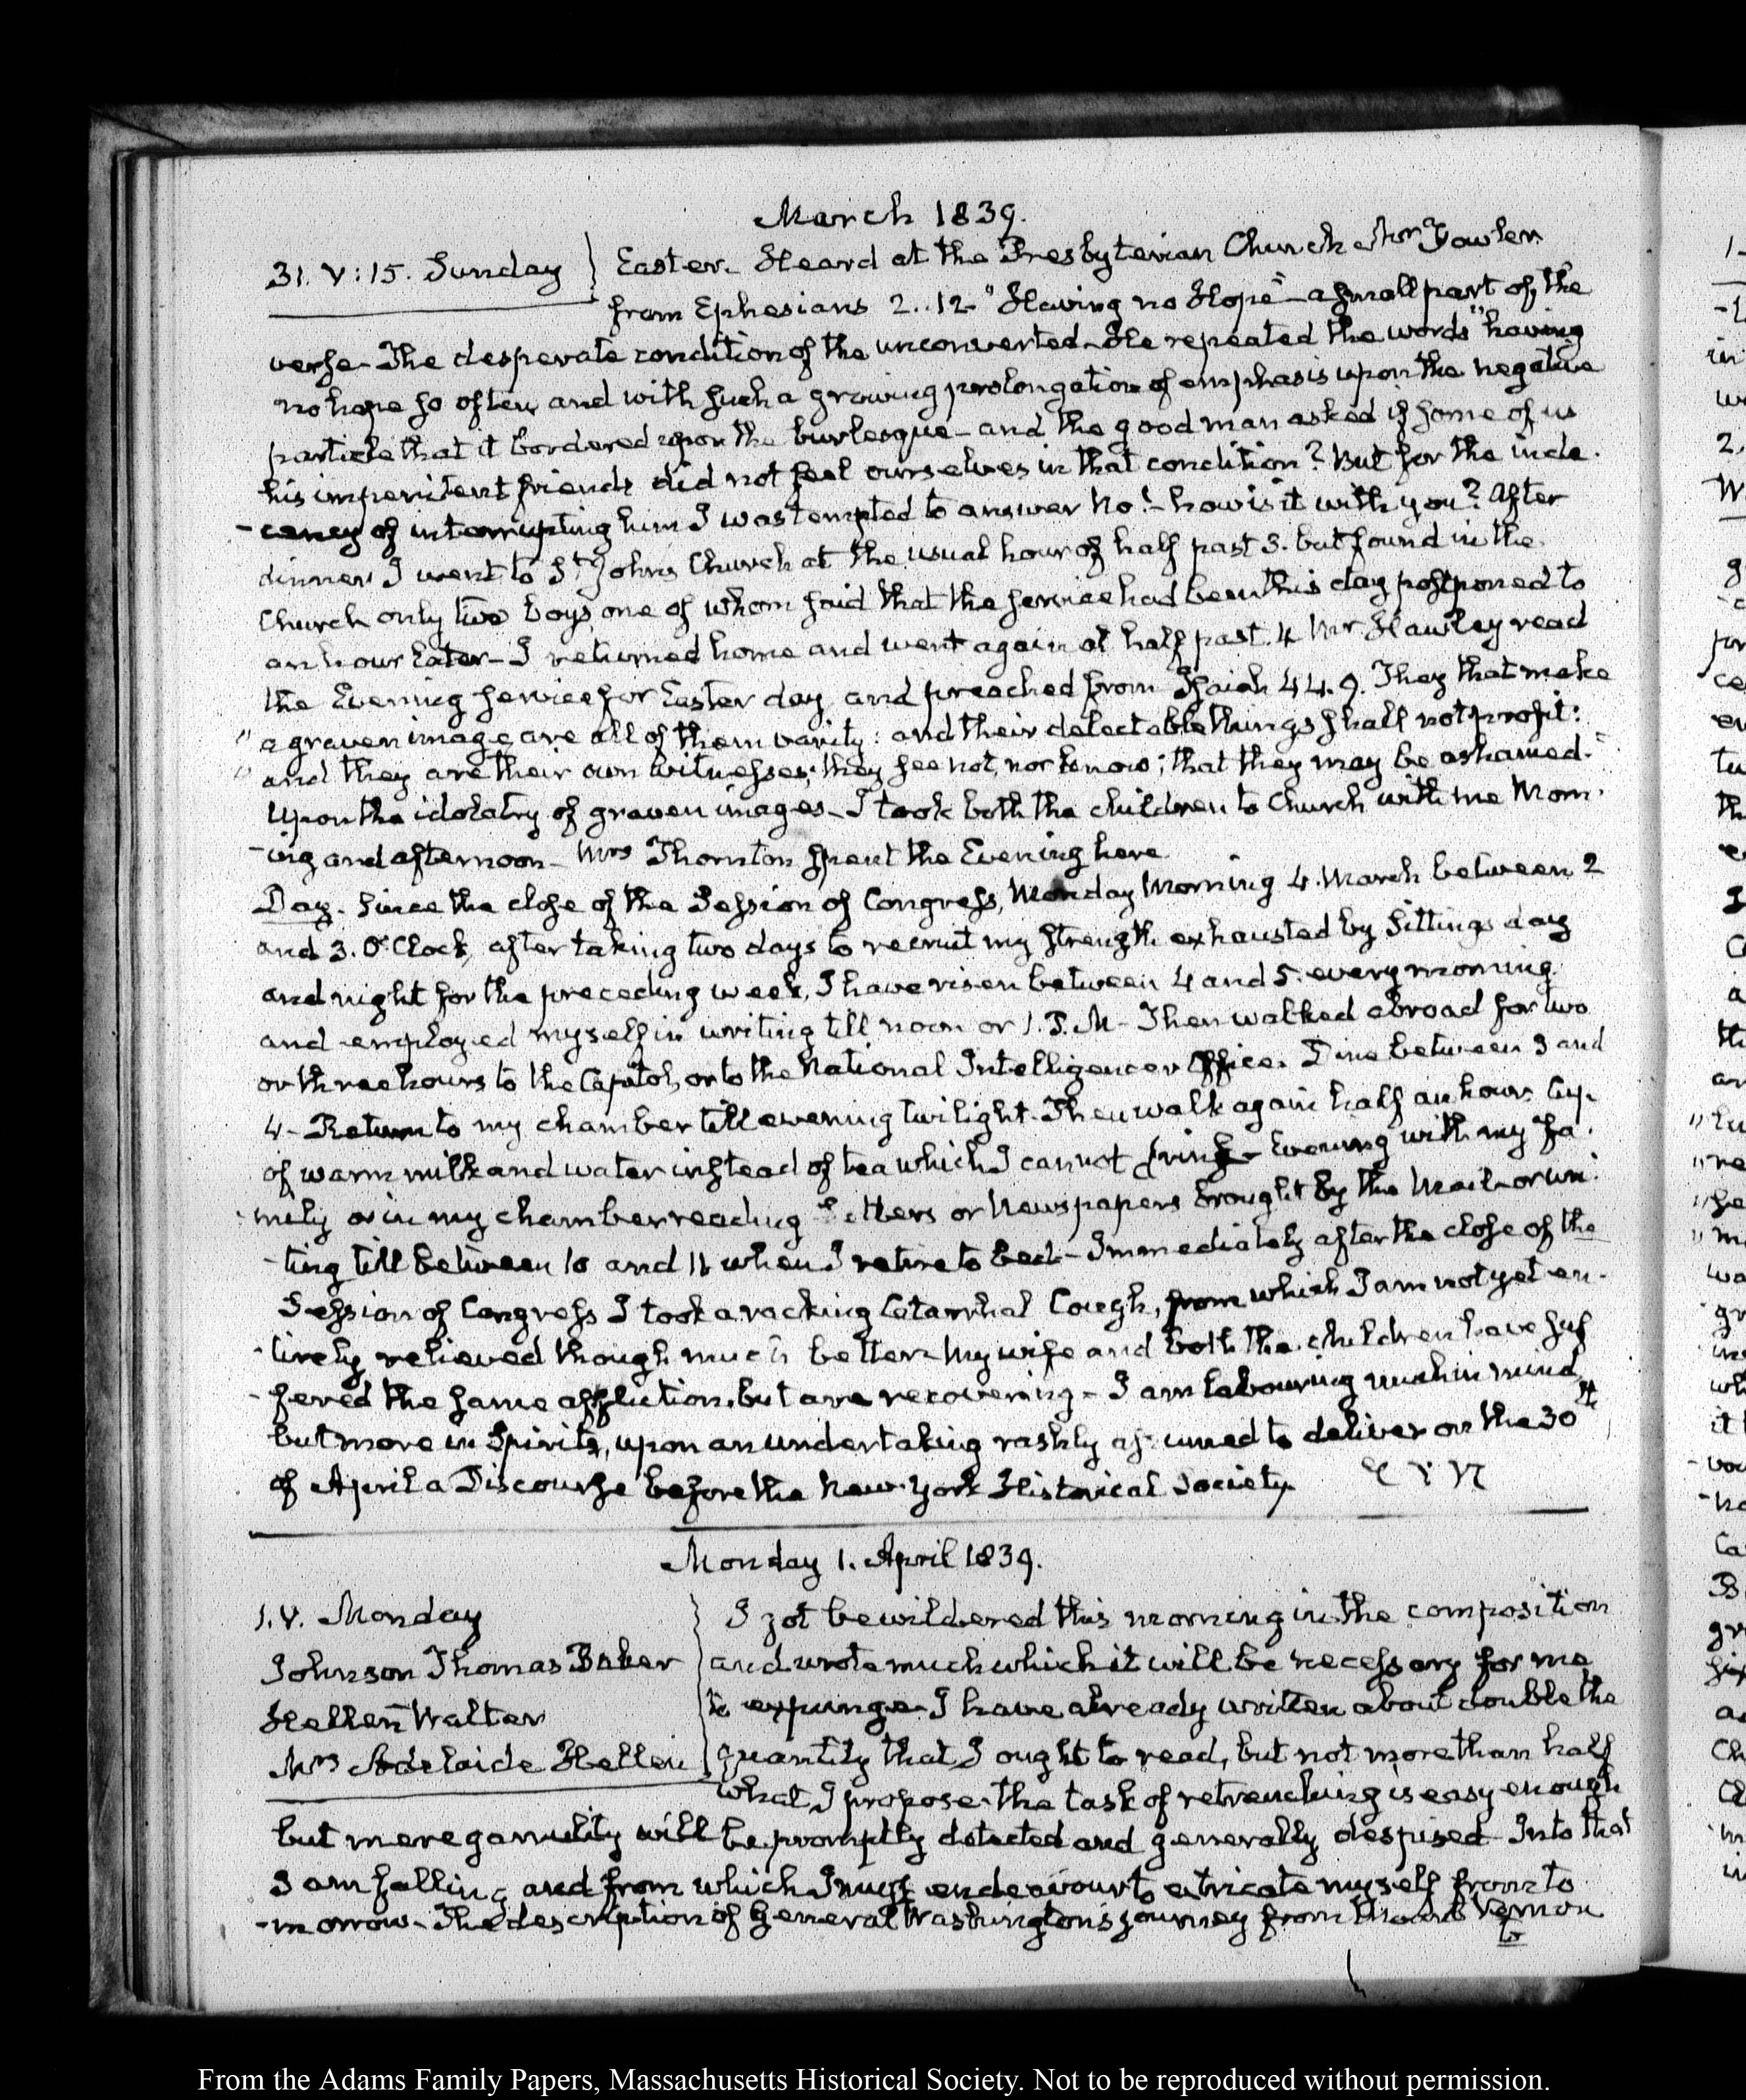 March 1839.
31. V: 15. Sunday } Easter. Heard at the Presbyterian Church Mr Fowler
from Ephesians 2..12 "Having no Hope" a small part of the
verse. The desperate condition of the unconverted. He repeated the words "having
no hope so often and with such a growing prolongation of emphasis upon the negative
particle that it bordered upon the burlesque - and the good man asked if some of us
his impenitent friends did not feel ourselves in that condition? But for the inde-
-cency of interrupting him I was tempted to answer No! - how is it with you? After
dinner I went to St Johns Church at the usual hour of half past 3. but found in the
Church only two boys one of whom said that the service had been this day postponed to
an hour later - I returned home and went again at half past 4 Mr Hawley read
the Evening service for Easter day and preached from Isaiah 44.9. They that make
" a graven image are all of them vanity: and their delectable things shall not profit:
" and they are their own witnesses; they see not, nor know; that they may be ashamed."
Upon the idolatry of graven images - I took both the children to Church with me Morn-
-ing and afternoon - Mrs Thornton spent the Evening here
Day. Since the close of the Session of Congress, Monday Morning 4. March between 2
and 3. O'Clock, after taking two days to recruit my strength exhausted by Sittings day
and night for the preceding week, I have risen between 4 and 5. every morning
and employed myself in writing till noon or 1. P.M - Then walked abroad for two
or three hours to the Capitol, or to the National Intelligencer Office. Dine between 3 and
4 - Return to my chamber till evening twilight. Then walk again half an hour. Cup
of warm milk and water instead of tea which I cannot drink - Evening with my fa-
-mily or in my chamber reading Letters or Newspapers brought by the Mail - or wri-
-ting till between 10 and 11 when I retire to bed - Immediately after the close of the
Session of Congress I took a racking Catarrhal Cough, from which I am not yet en-
-tirely relieved though much better. My wife and both the children have suf
-fered the same affliction, but are recovering - I am labouring much in mind,
but more in Spirits, upon an undertaking rashly assumed to deliver on the 30th
of April a Discourse before the New-York Historical Society.
Monday 1. April 1839.
1. V. Monday
Johnson Thomas Baker
Hellen Walter
Mrs Adelaide Hellen
I got bewildered this morning in the composition
and wrote much which it will be necessary for me
to expunge. I have already written about double the
quantity that I ought to read, but not more than half
what I propose. the task of retrenching is easy enough
but mere garrulity will be promptly detected and generally despised. Into that
I am falling and from which I must endeavour to extricate myself from to
-morrow - The description of General Washington's journey from Mount Vernon
to
From the Adams Family Papers, Massachusetts Historical Society. Not to be reproduced without permission.